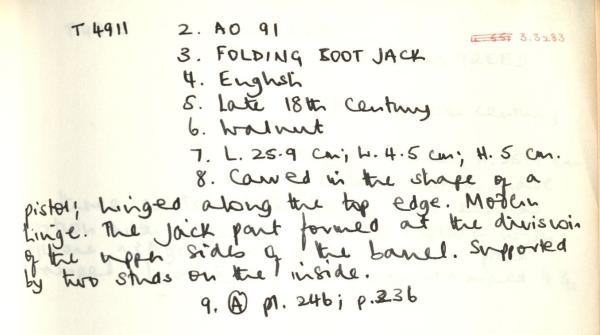 T 4911 2. AO 91 3.3233
3. FOLDING BOOT JACK
4. English
5. Late 18th Century
6. Walnut
7. L. 25.9 cm; W. 4.5 cm; H. 5 cm.
8. Carved in the shape of a
pistol; hinged along the top edge. Modern
hinge. The jack part formed at the division
of the upper sides of the barrel. Supported
by two studs on the inside.
9. Ⓐ pl. 24b; p.236